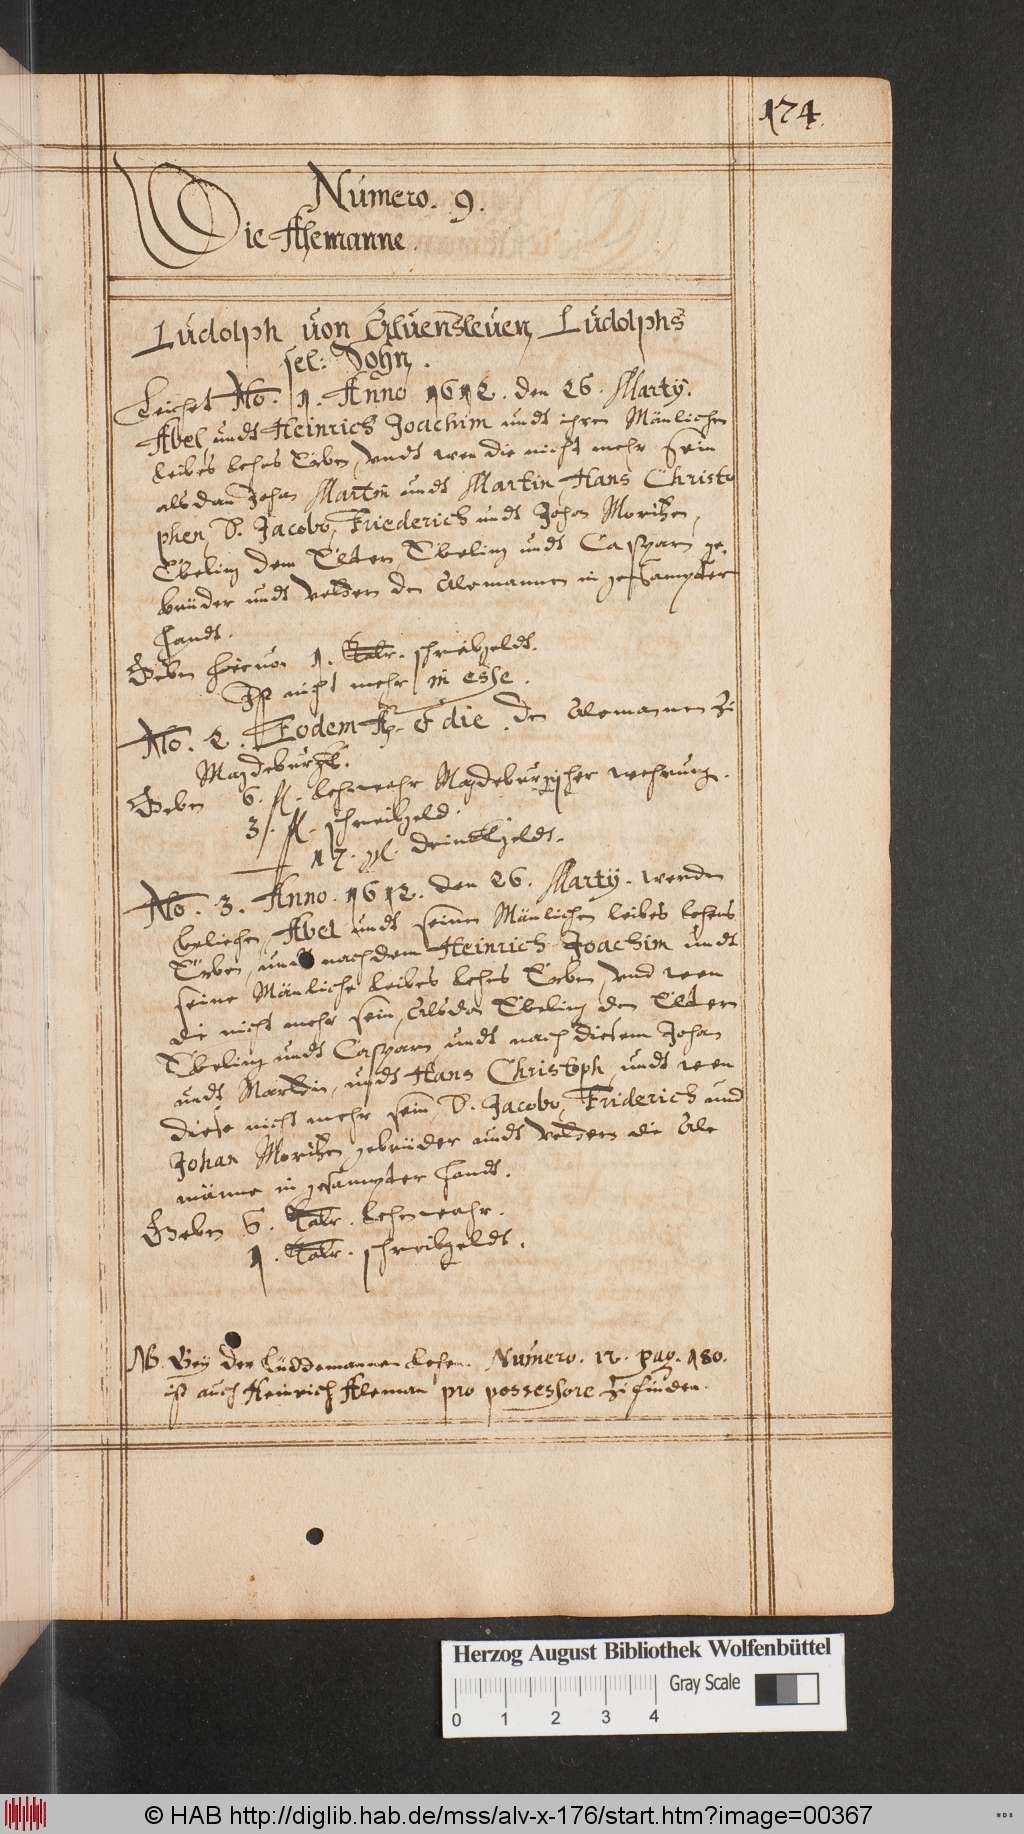 174.
Numero. 9.
Die Alemanne.
Ludolph von Alvensleven, Ludolphs
sel: Sohn.
Leichet No. 1. Anno 1612. den 26. Marty.
Abel undt Heinrich Joachim undt ihren Mänlichen
leibes lehns Erben, undt wen die nicht mehr sein
alsdan Johan Martin undt Martin, Hans Christo
phen, D. Jacobo, Friederich undt Johan Moritzen,
Ebeling dem Eltern, Ebeling undt Casparn ge,
brüder undt Veddern den Alemannen in gesampter
handt.
Geben hiervon 1. Taler. schreibgeldt.
Ist nicht mehr in esse.
No. 2. Eodem Ao. & die. den Alemannen Zu
Magdeburgk.
Geben 6. fl. lehnwahr Magdeburgischer wehrung.
3. fl. schreibgeld.
12. gl. drinckgeldt.
No. 3. Anno. 1612. den 26. Marty. werden
beliehen, Abel undt seinen Mänlichen leibes lehens
Erben, undt nachdem Heinrich Joachim undt
seine Mänliche leibes lehns Erben, und wen
die nicht mehr sein, Alsdan Ebeling den Eltern
Ebeling undt Casparn, undt nach diesem Johan
undt Martin, undt Hans Christoph, undt wen
diese nicht mehr sein, D. Jacobo, Friderich und
Johan Moritzen, gebrüder undt Veddern die Ale
männe in gesampter handt.
Geben 6. Taler. lehenwahr.
1. Taler. schreibgeldt.
NB. Bey der Lüddemannen lehen. Numero. 12. pag. 180.
ist auch Heinrich Aleman pro possessore zu finden.
Herzog August Bibliothek Wolfenbüttel
Gray Scale
0 1 2 3 4
© HAB http://diglib.hab.de/mss/alv-x-176/start.htm?image=00367